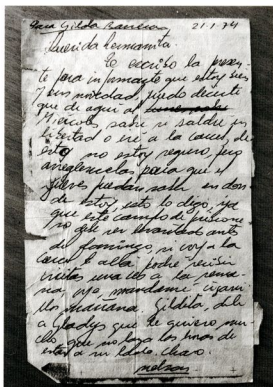 Para Gilda          21-1-74
Querida hermanita:
Te escribo la presen-
te para informarte que estoy bien
y sin novedad, puedo decirte
que de aquí al
Miércoles sabré si saldré en
libertad o iré a la cárcel, de
esto no estoy seguro, pero
para que el
jueves puedan saber en don-
de estoy, esto lo digo, ya
que este campo de prisione-
ros debe ser antes
de domingo, si voy a la
cárcel allá podré recibir
visitas una vez a la sema-
na, ojo mandame cigarri-
llos mañana. Gildita, dile
a Gladys que la quiero mu-
cho, que no hago las horas de
estar a su lado. Chao.
nelson